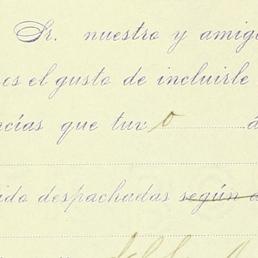 Sr. nuestro y amig
os el gusto de incluirle
cías que tuv o á
ido despachadas según